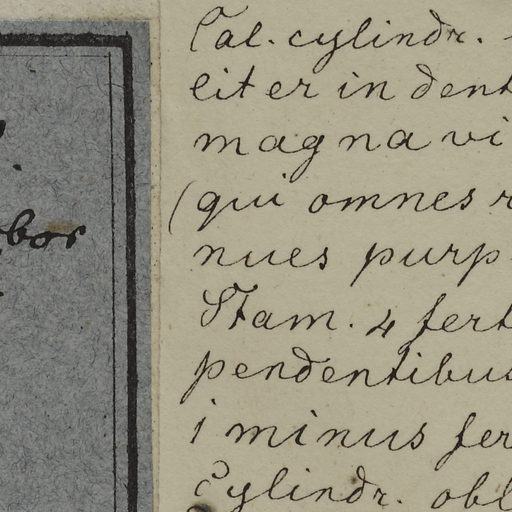 bor
Cal. cylindr.
liter in dent
magna vi
(qui omnes
nues purp
Stam. 4 fert
pendentibus
1 minus fer
Cylindr. obl